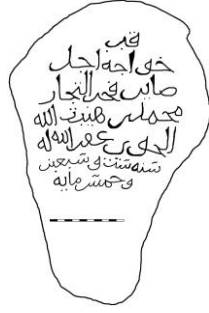 قبر
خواجه اجل
صاين فخر التجار
محمد بن هبت الله
الخوى غفر الله له
سنه ست و سبعين
و خمس مايه